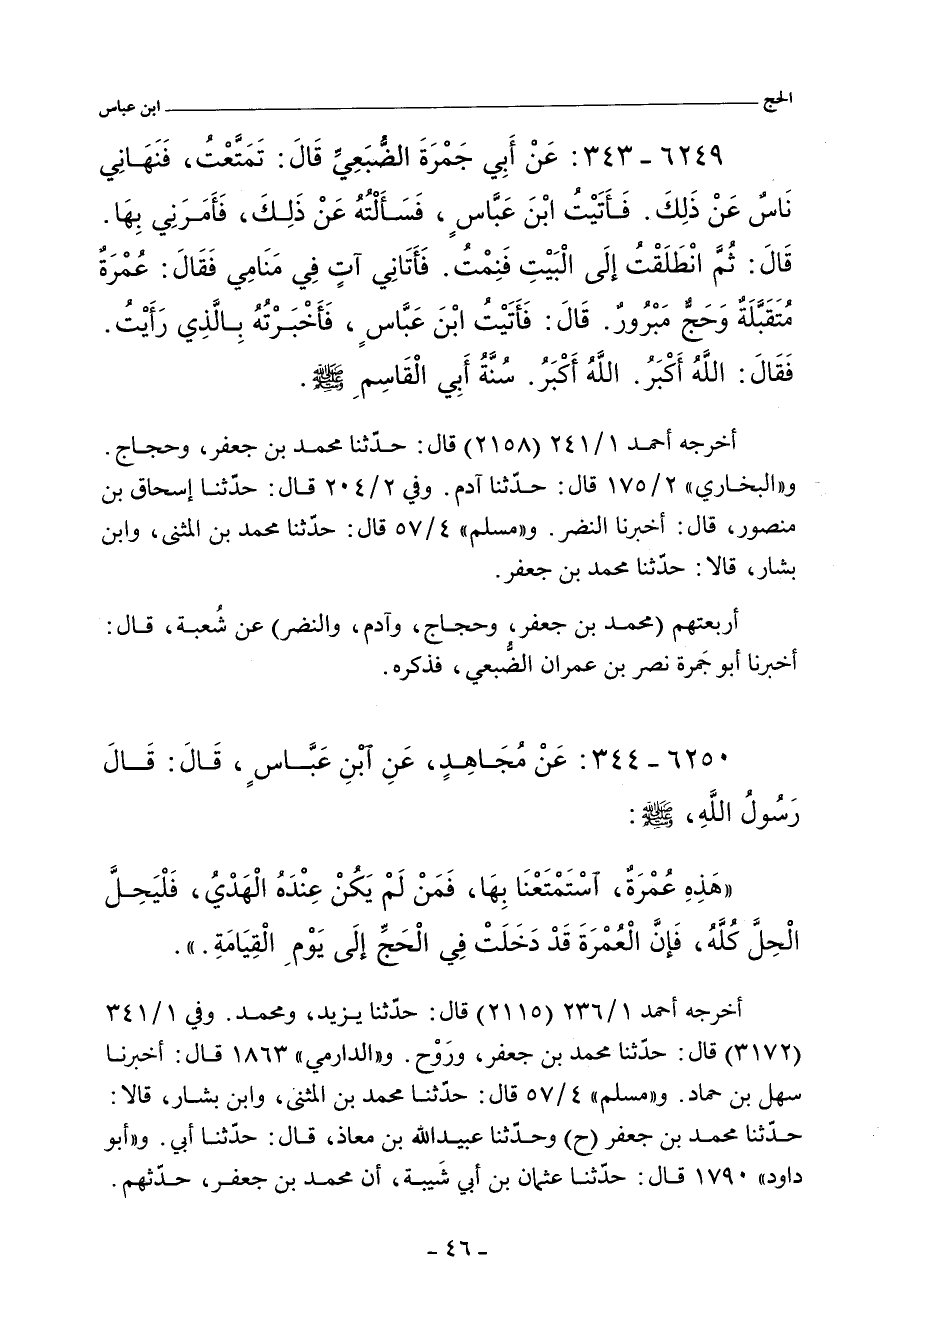 الحج ابن عباس
٦٢٤٩ - ٣٤٣: عَنْ أَبِي جَمْرَةَ الضُّبَعِيِّ قَالَ: تَمَتَّعْتُ، فَنَهَانِي
نَاسٌ عَنْ ذَلِكَ. فَأَتَيْتُ ابْنَ عَبَّاسٍ، فَسَأَلْتُهُ عَنْ ذَلِكَ، فَأَمَرَنِي بِهَا.
قَالَ: ثُمَّ انْطَلَقْتُ إِلَى الْبَيْتِ فَنِمْتُ. فَأَتَانِي آتٍ فِي مَنَامِي فَقَالَ: عُمْرَةٌ
مُتَقَبَّلَةٌ وَحَجٌّ مَبْرُورٌ. قَالَ: فَأَتَيْتُ ابْنَ عَبَّاسٍ، فَأَخْبَرْتُهُ بِالَّذِي رَأَيْتُ.
فَقَالَ: اللَّهُ أَكْبَرُ. اللَّهُ أَكْبَرُ. سُنَّةُ أَبِي الْقَاسِمِ ﷺ.
أخرجه أحمد ٢٤١/١ (٢١٥٨) قال: حدّثنا محمد بن جعفر، وحجاج.
و«البخاري» ١٧٥/٢ قال: حدّثنا آدم. وفي ٢٠٤/٢ قال: حدّثنا إسحاق بن
منصور، قال: أخبرنا النضر. و«مسلم» ٥٧/٤ قال: حدّثنا محمد بن المثنى، وابن
بشار، قالا: حدّثنا محمد بن جعفر.
أربعتهم (محمد بن جعفر، وحجاج، وآدم، والنضر) عن شُعبة، قال:
أخبرنا أبو جَمرة نصر بن عمران الضُّبعي، فذكره.
٦٢٥٠ - ٣٤٤: عَنْ مُجَاهِدٍ، عَنِ ٱبْنِ عَبَّاسٍ، قَالَ: قَالَ
رَسُولُ اللَّهِ، ﷺ:
«هَذِهِ عُمْرَةٌ، ٱسْتَمْتَعْنَا بِهَا، فَمَنْ لَمْ يَكُنْ عِنْدَهُ الْهَدْيُ، فَلْيَحِلَّ
الْحِلَّ كُلَّهُ، فَإِنَّ الْعُمْرَةَ قَدْ دَخَلَتْ فِي الْحَجِّ إِلَى يَوْمِ الْقِيَامَةِ.».
أخرجه أحمد ٢٣٦/١ (٢١١٥) قال: حدّثنا يزيد، ومحمد. وفي ٣٤١/١
(٣١٧٢) قال: حدّثنا محمد بن جعفر، ورَوْح. و«الدارمي» ١٨٦٣ قال: أخبرنا
سهل بن حماد. و«مسلم» ٥٧/٤ قال: حدّثنا محمد بن المثنى، وابن بشار، قالا:
حدّثنا محمد بن جعفر (ح) وحدّثنا عبيدالله بن معاذ، قال: حدّثنا أبي. و«أبو
داود» ١٧٩٠ قال: حدّثنا عثمان بن أبي شَيبة، أن محمد بن جعفر، حدّثهم.
- ٤٦ -